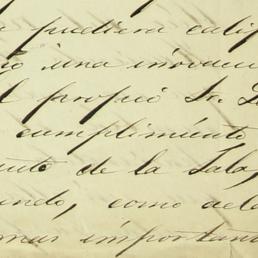 pudiera calif
una innovac
l propio Sr. D
cumplimiento
nto de la Sala,
undo, como dela
mas importan